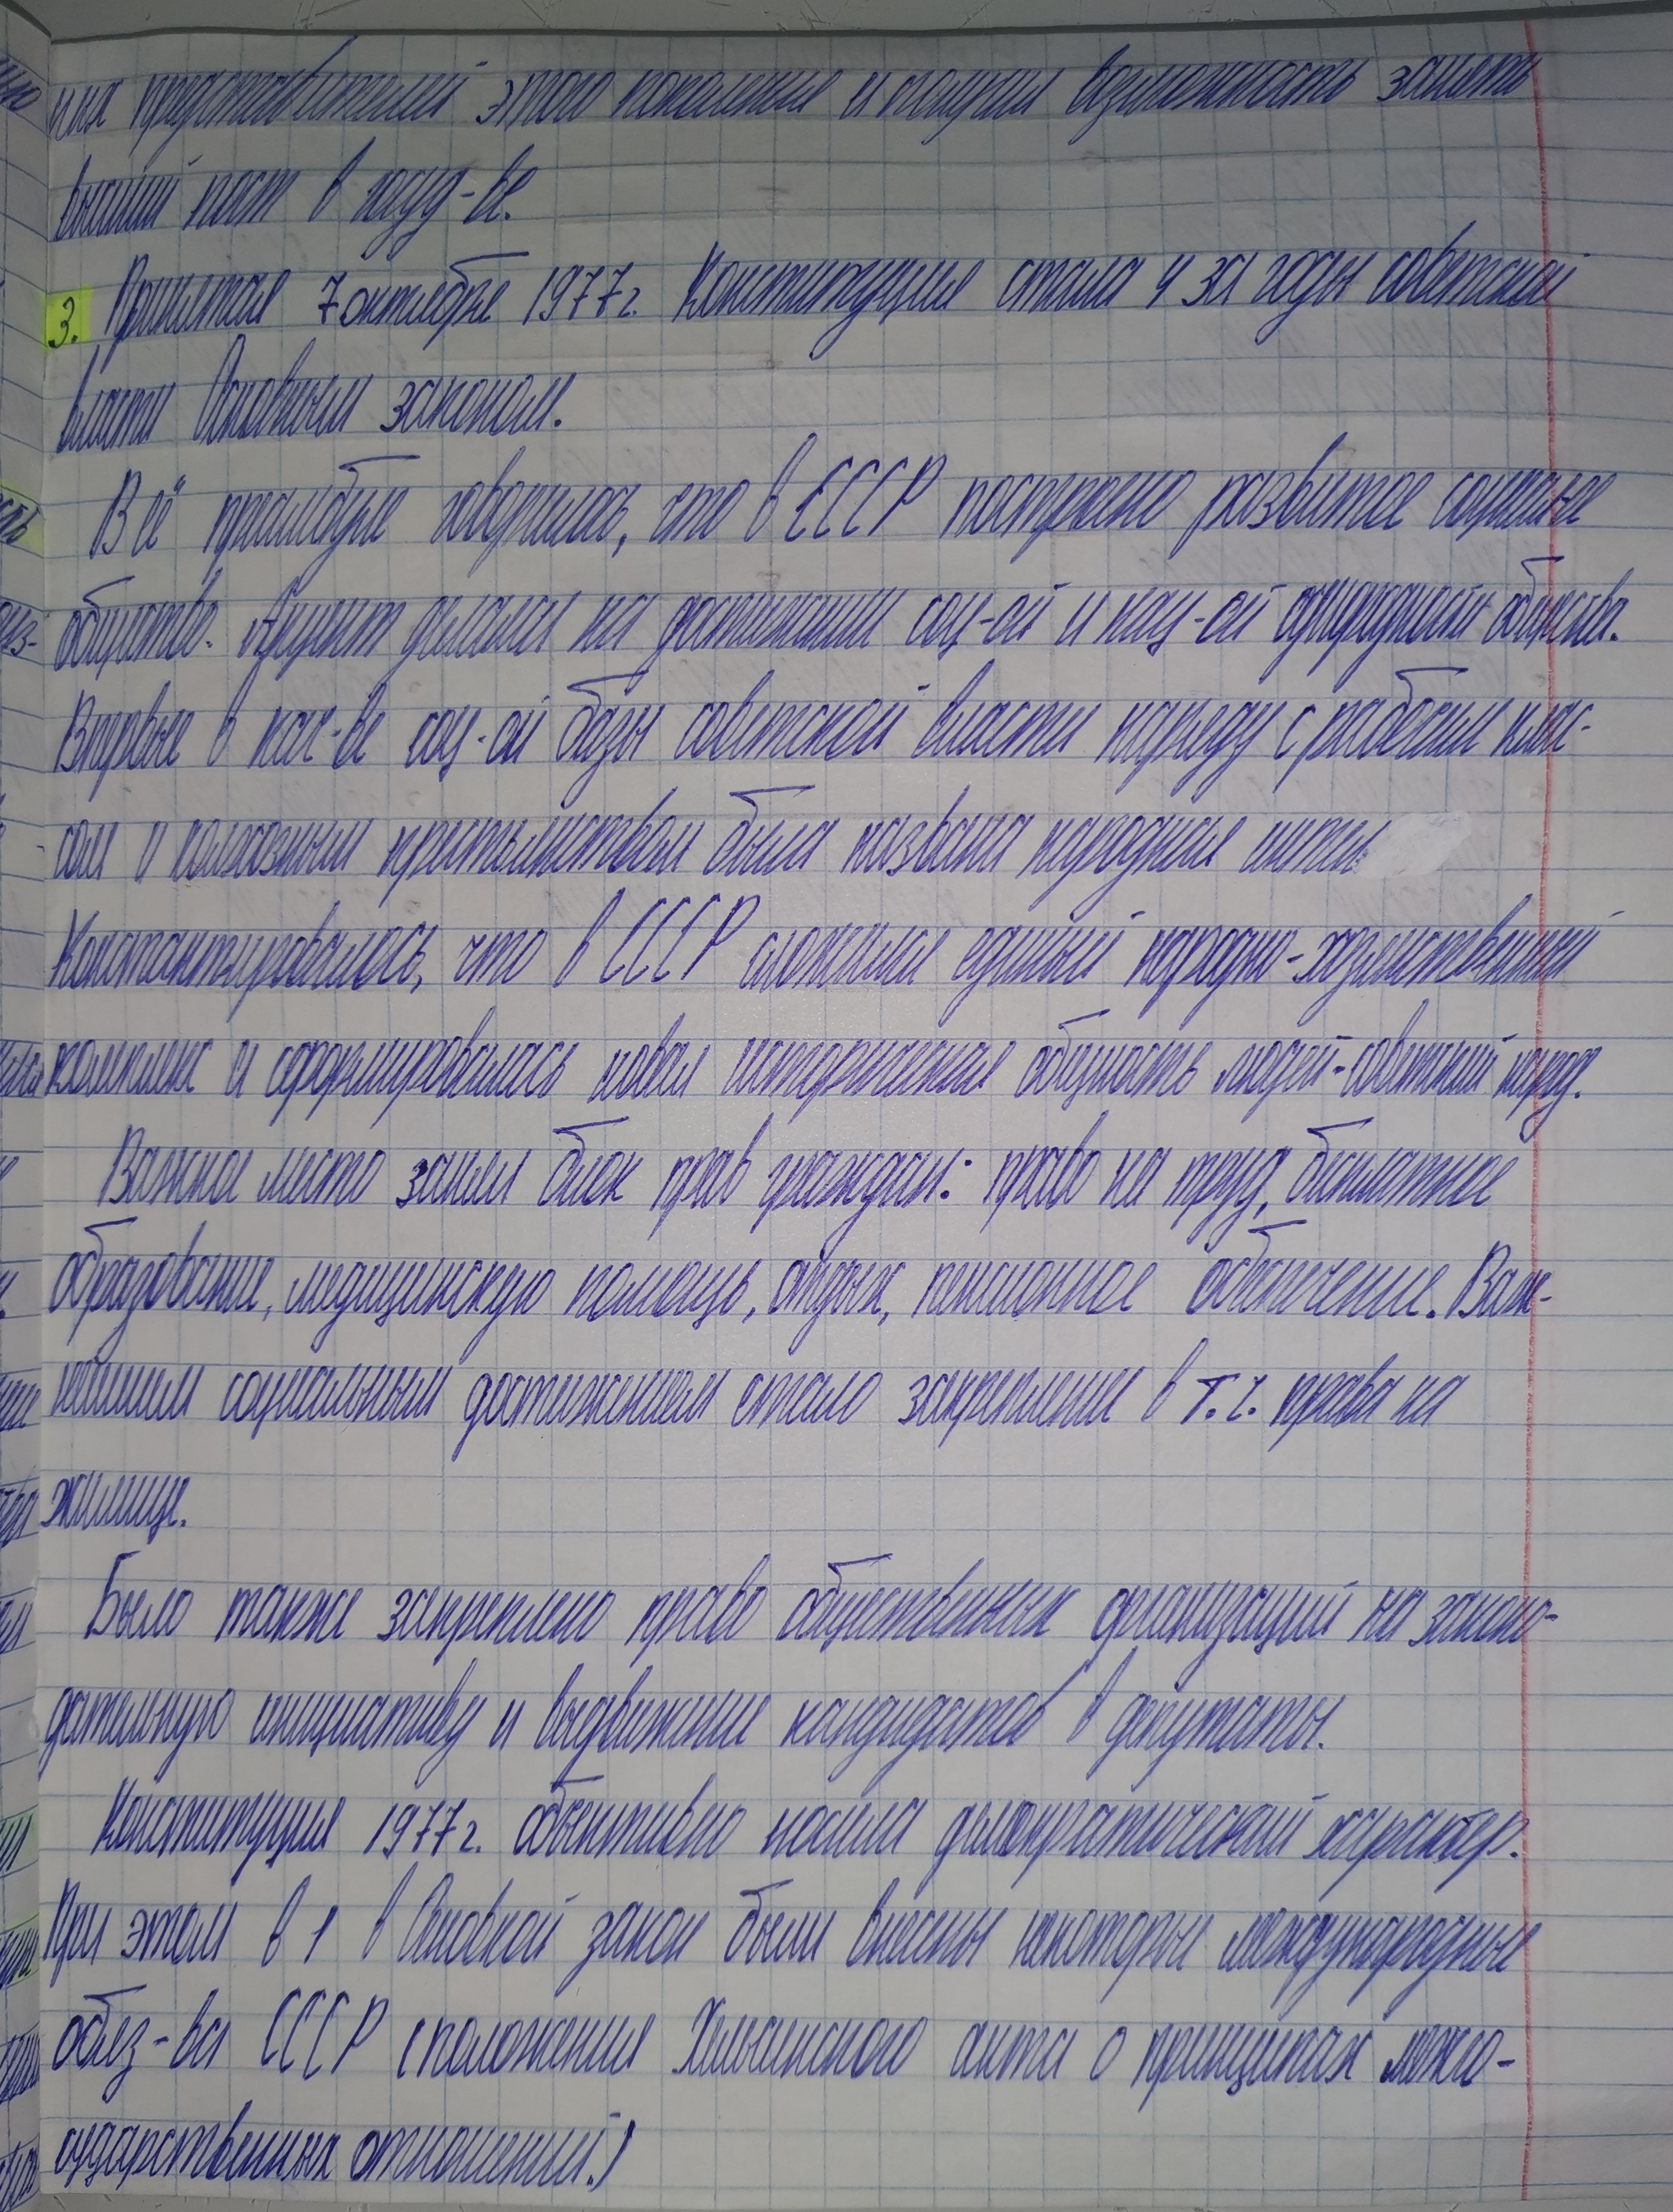 них представителей этого поколения и получил возможность занять
высший пост в госуд-ве.
3. Принятая 7 октября 1977 г. Конституция стала 4 за годы советской
власти Основным законом.
В её преамбуле говорилось, что в СССР построено развитое социал-ое
общество. Акцент делался на достижении соц-ой и нац-ой однородности общества.
Впервые в кач-ве соц-ой базы советской власти наряду с рабочим клас-
-сом и колхозным крестьянством была названа народная интел.
Константировалось, что в СССР сложился единый народно-хозяйственный
комплекс и сформировалась новая историческая общность людей-советский народ.
Важное место занял блок прав граждан: право на труд, бесплатное
образование, медицинскую помощь, отдых, пенсионное обеспечение. Важ-
нейшим социальным достижением стало закрепление в т.ч. права на
жилище.
Было также закреплено право общественных организаций на законо-
дательную инициативу и выдвижение кандидатов в депутаты.
Конституция 1977 г. объективно носила демократический характер.
При этом в 1 в Основной закон были внесены некоторые международные
обяз-ва СССР (положения Хельсинского акта о принципах межго-
сударственных отношений.)